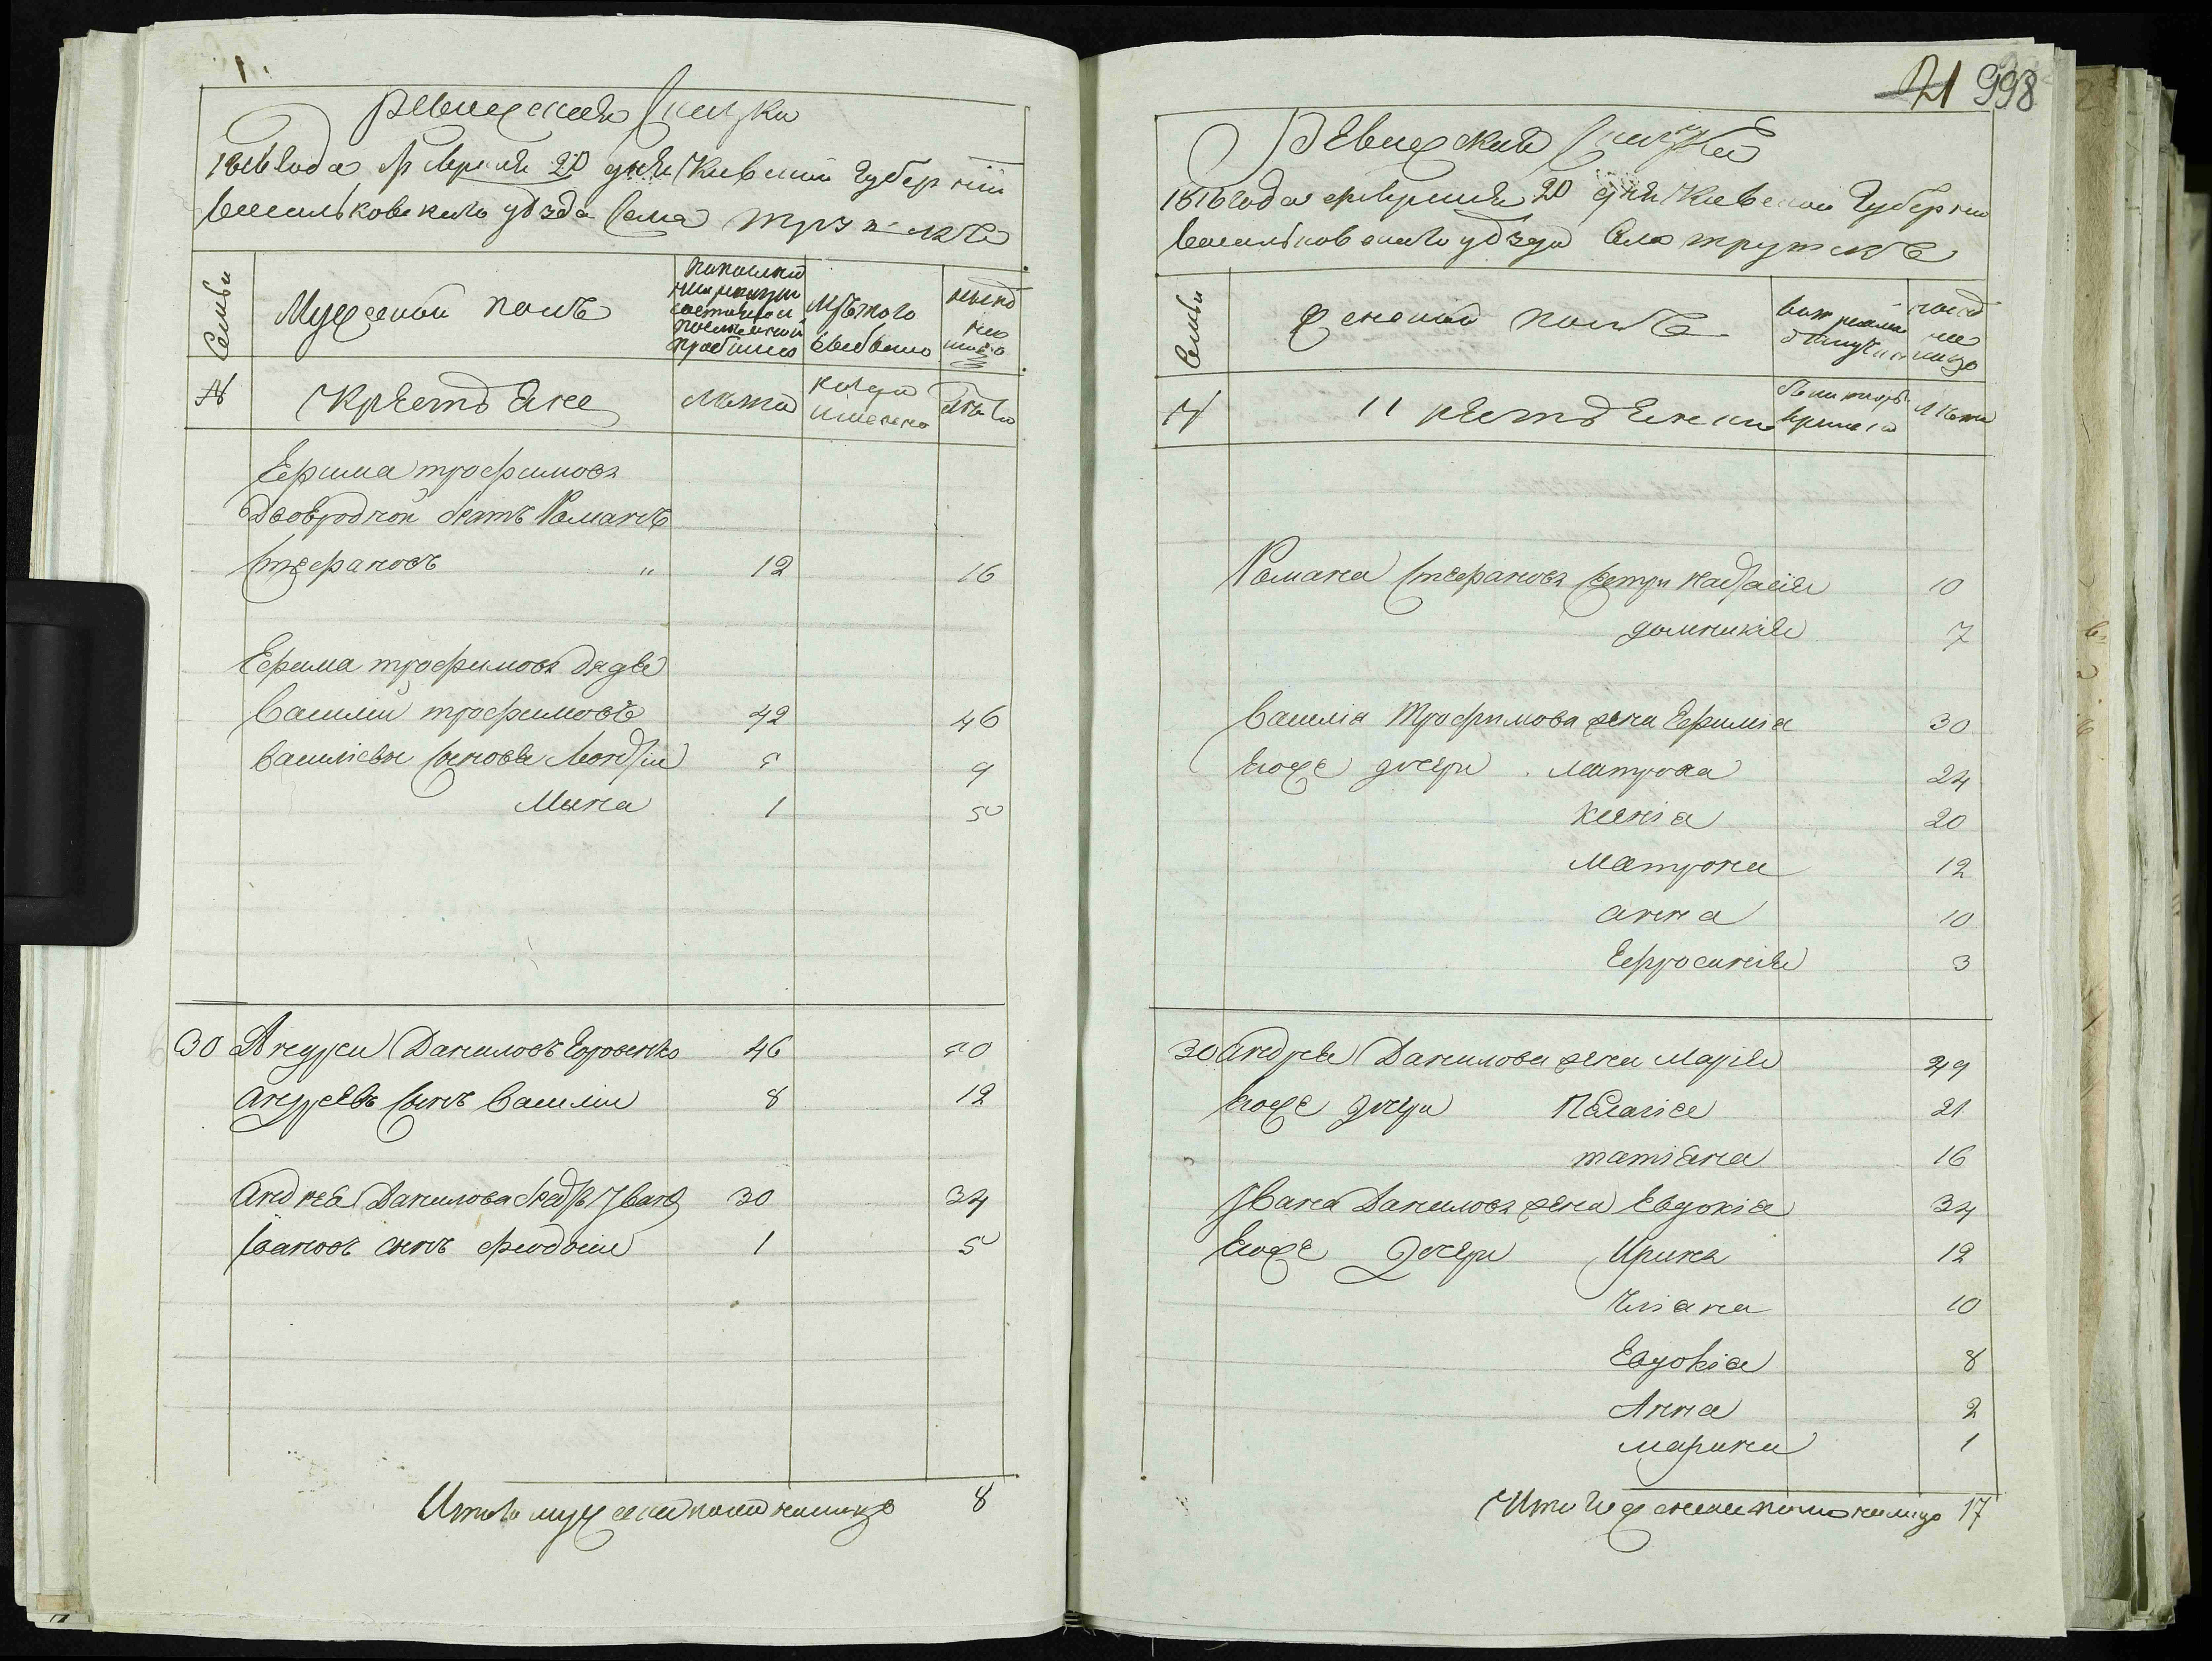 Ревизская Сказка
1816 года Апреля 20 дня Киевской Губернии
Васильковского уѣзда Села
Семьи
Мужеской полъ
По последней ревизии состояло и после оной прибыло
Изъ того выбыло
Ныне на лицо
№
Крестьяне
Лѣта
Когда именно
Лѣта
Ефима трофимова
Двоюродной братъ Романъ
Стефановъ " 12 16
Ефима трофимова дядя
Василий трофимовъ 42 46
Василиевы сыновья 5 9
Мина 1 5
30 Андрей Даниловъ 46 50
Андреевъ сынъ Василий 8 12
Андрея Данилова братъ Иванъ 30 34
Ивановъ сынъ Феодосий 1 5
Итого мужеска пола на лицо 8
21 998
Ревизская Сказка
1816 года Апреля 20 дня Киевской Губернии
Васильковского уѣзда Села
Семьи
Женской полъ
Во временной отлучке
Ныне на лицо
№
Крестьянки
Съ котораго времени
Лѣта
Романа Стефанова сестры Настасия 10
Домникия 7
Василия Трофимова жена Ефимия 30
Егоже дочери Матрона 24
Ксения 20
Матрона 12
Анна 10
Ефросиния 3
30 Андрея Данилова жена Мария 49
Егоже дочери Пелагия 21
татiяна 16
Ивана Данилова жена Евдокiя 34
Егоже дочери Ирина 12
Улiяна 10
Евдокiя 8
Анна 2
Марина 1
Итого женска пола на лицо 17